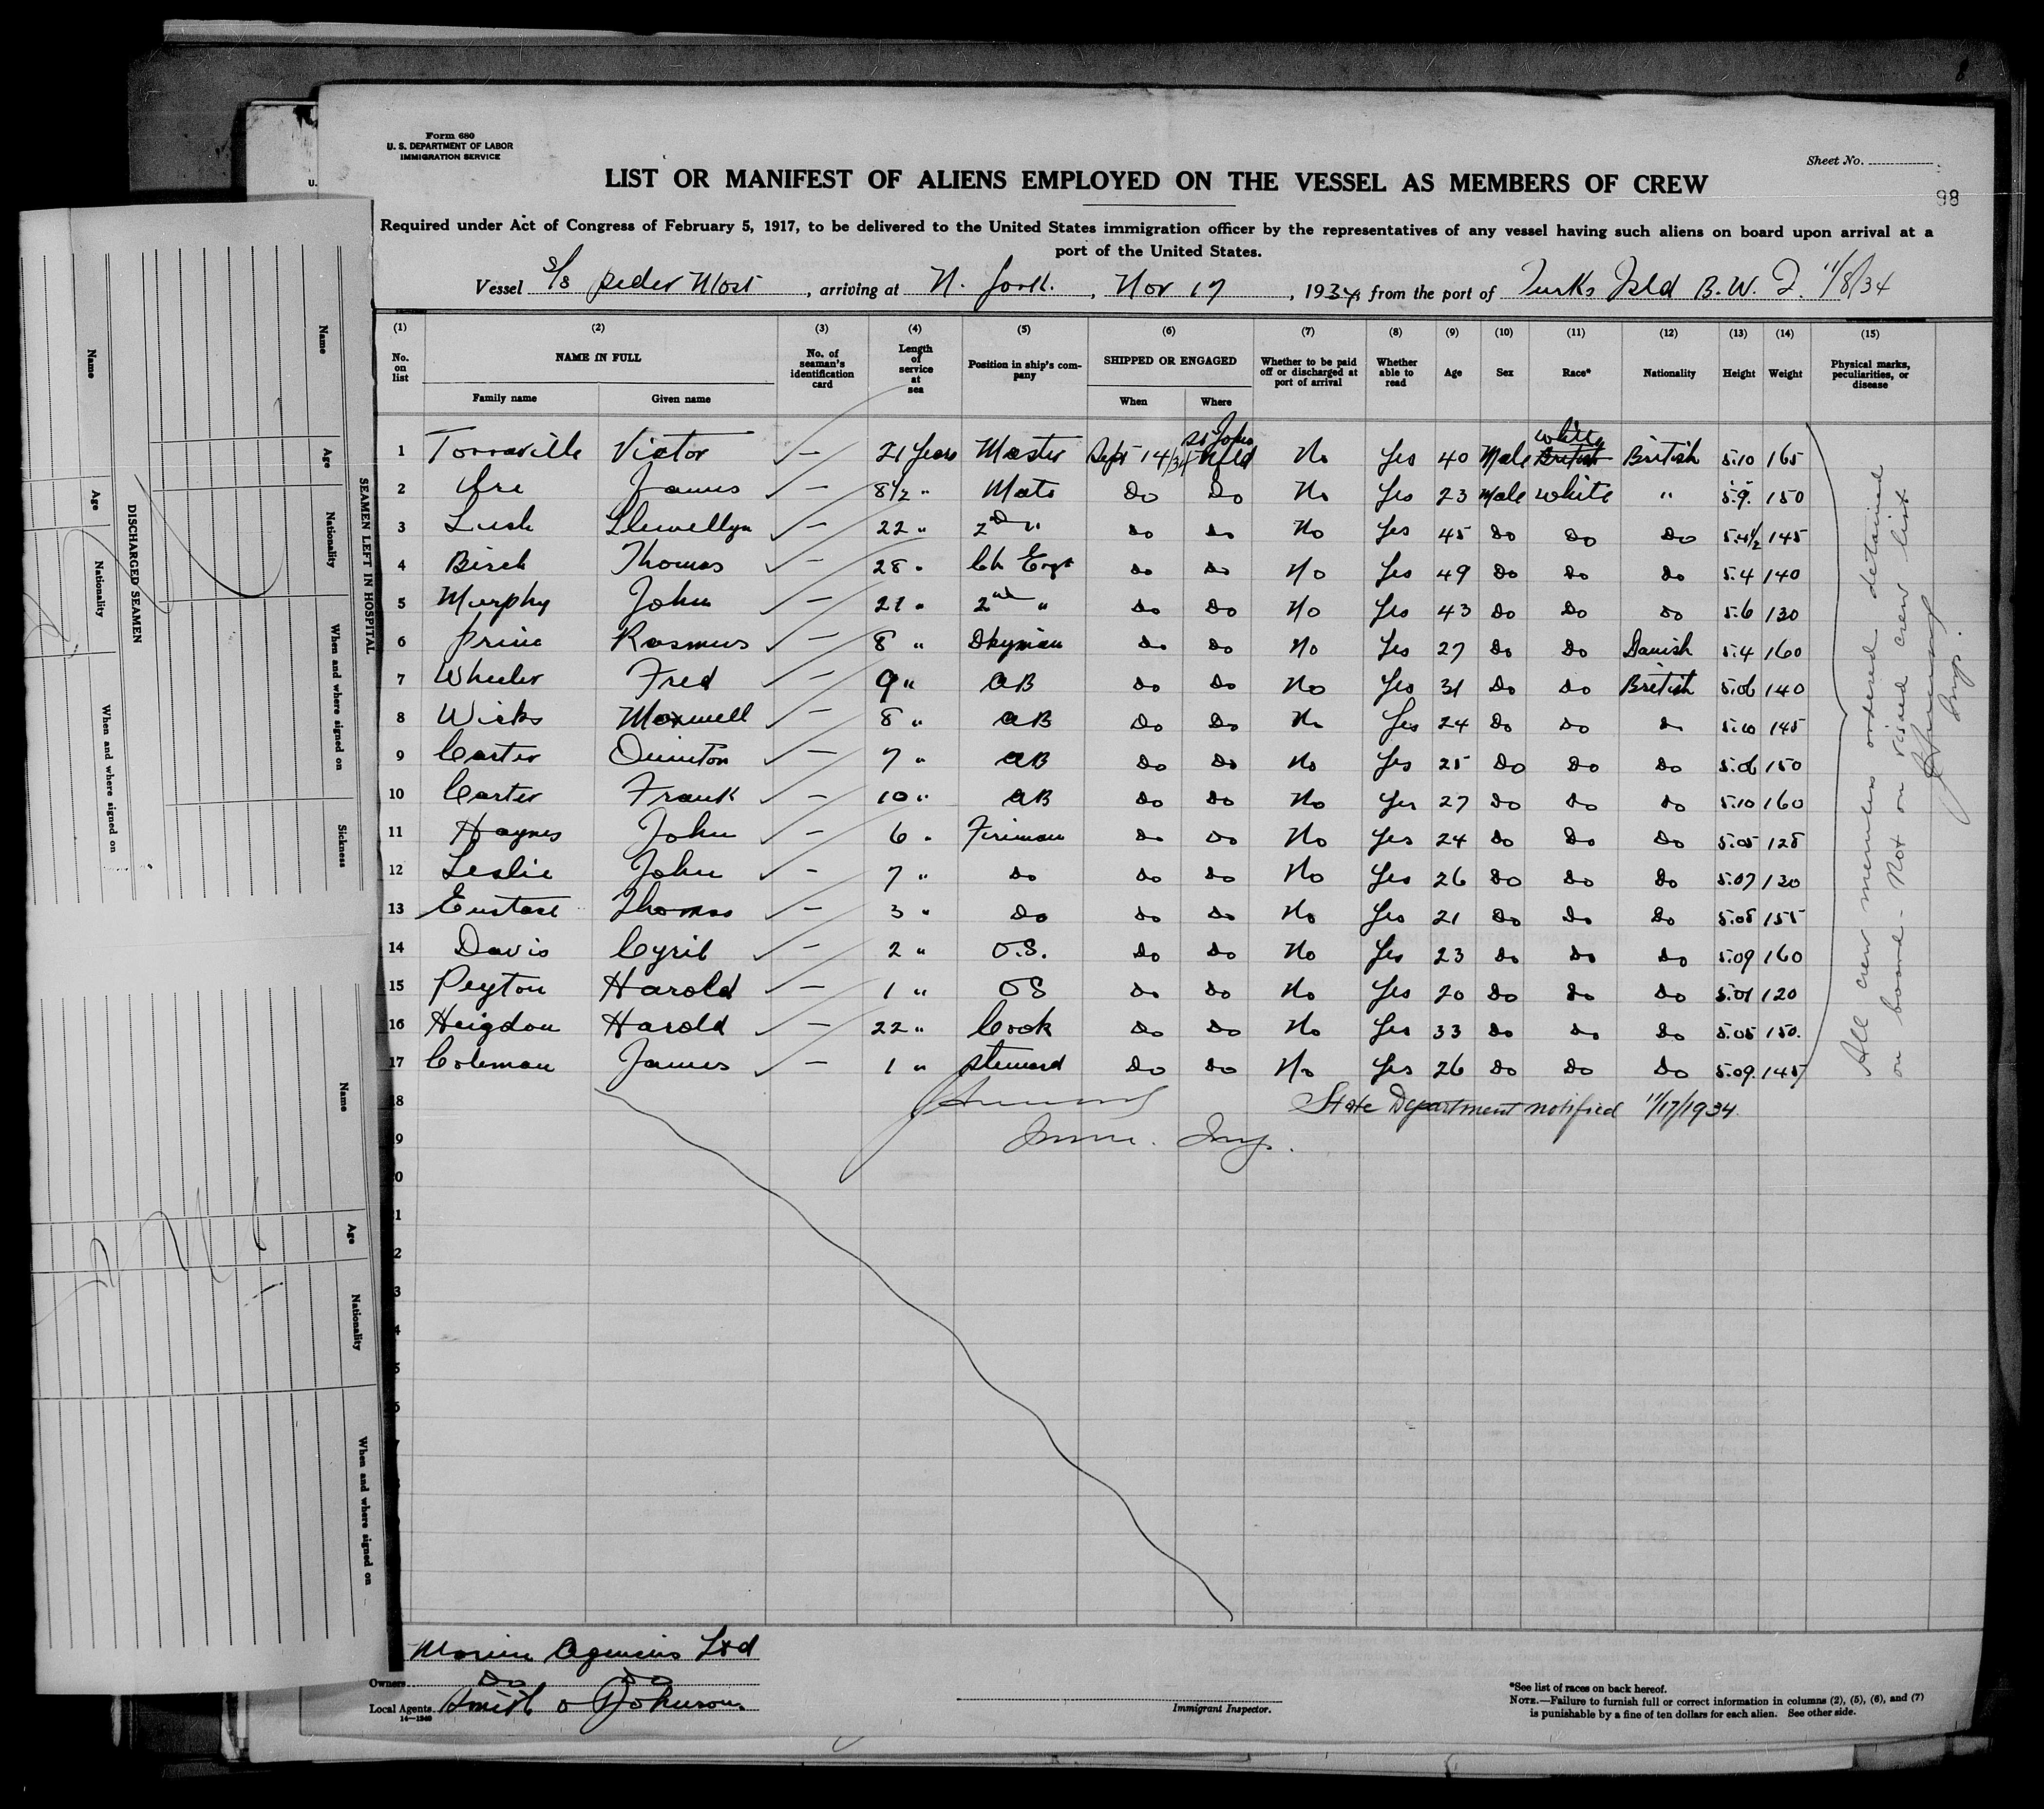 8
Form 680
U. S. DEPARTMENT OF LABOR
IMMIGRATION SERVICE
Sheet No.
98
LIST OR MANIFEST OF ALIENS EMPLOYED ON THE VESSEL AS MEMBERS OF CREW
Required under Act of Congress of February 5, 1917, to be delivered to the United States immigration officer by the representatives of any vessel having such aliens on board upon arrival at a
port of the United States.
Vessel S/S Peder Most, arriving at N. York., Nov 17, 1934, from the port of Turks Isld B.W.I. 11/8/34
(1) (2) (3) (4) (5) (6) (7) (8) (9) (10) (11) (12) (13) (14) (15)
No. on list NAME IN FULL Family name Given name No. of seaman's identification card Length of service at sea Position in ship's company SHIPPED OR ENGAGED When Where Whether to be paid off or discharged at port of arrival Whether able to read Age Sex Race* Nationality Height Weight Physical marks, peculiarities, or disease
1 Torraville Victor — 21 Years Master Sept 14/34 St John Nfld No Yes 40 Male British White British 5.10 165
2 James — 8½ " Mate Do Do No Yes 23 Male White " 5.9. 150
3 Lush Llewellyn — 22 " 2nd " Do Do No Yes 45 Do Do Do 145
4 Birch Thomas — 28 " Ch Engr Do Do No Yes 49 Do Do Do 5.4 140
5 Murphy John — 21 " 2nd " Do Do No Yes 43 Do Do Do 5.6 130
6 Prine Rasmus — 8 " Dkyman Do Do No Yes 27 Do Do Danish 5.4 160
7 Wheeler Fred — 9 " AB Do Do No Yes 31 Do Do British 5.06 140
8 Wicks Maxwell — 8 " AB Do Do No Yes 24 Do Do Do 5.10 145
9 Carter Quinton — 7 " AB Do Do No Yes 25 Do Do Do 5.06 150
10 Carter Frank — 10 " AB Do Do No Yes 27 Do Do Do 5.10 160
11 Haynes John — 6 " Fireman Do Do No Yes 24 Do Do Do 5.05 128
12 Leslie John — 7 " Do Do Do No Yes 26 Do Do Do 5.07 130
13 Eustace Thomas — 3 " Do Do Do No Yes 21 Do Do Do 5.08 155
14 Davis Cyril — 2 " O.S. Do Do No Yes 23 Do Do Do 5.09 160
15 Peyton Harold — 1 " OS Do Do No Yes 20 Do Do Do 5.01 120
16 Heigdon Harold — 22 " Cook Do Do No Yes 33 Do Do Do 5.05 150.
17 Coleman James — 1 " Steward Do Do No Yes 26 Do Do Do 5.09. 145
18
State Department notified 11/17/1934.
Imm. Insp.
All crew members ordered detained
on board - Not on visaed crew list
Insp.
Marine Agencies Ltd
Owners Do Do
Local Agents Smith & Johnson.
14—1240
Immigrant Inspector.
*See list of races on back hereof.
NOTE.—Failure to furnish full or correct information in columns (2), (5), (6), and (7)
is punishable by a fine of ten dollars for each alien. See other side.
SEAMEN LEFT IN HOSPITAL
Name
Age
Nationality
When and where signed on
Sickness
DISCHARGED SEAMEN
Name
Age
Nationality
When and where signed on
Name
Age
Nationality
When and where signed on